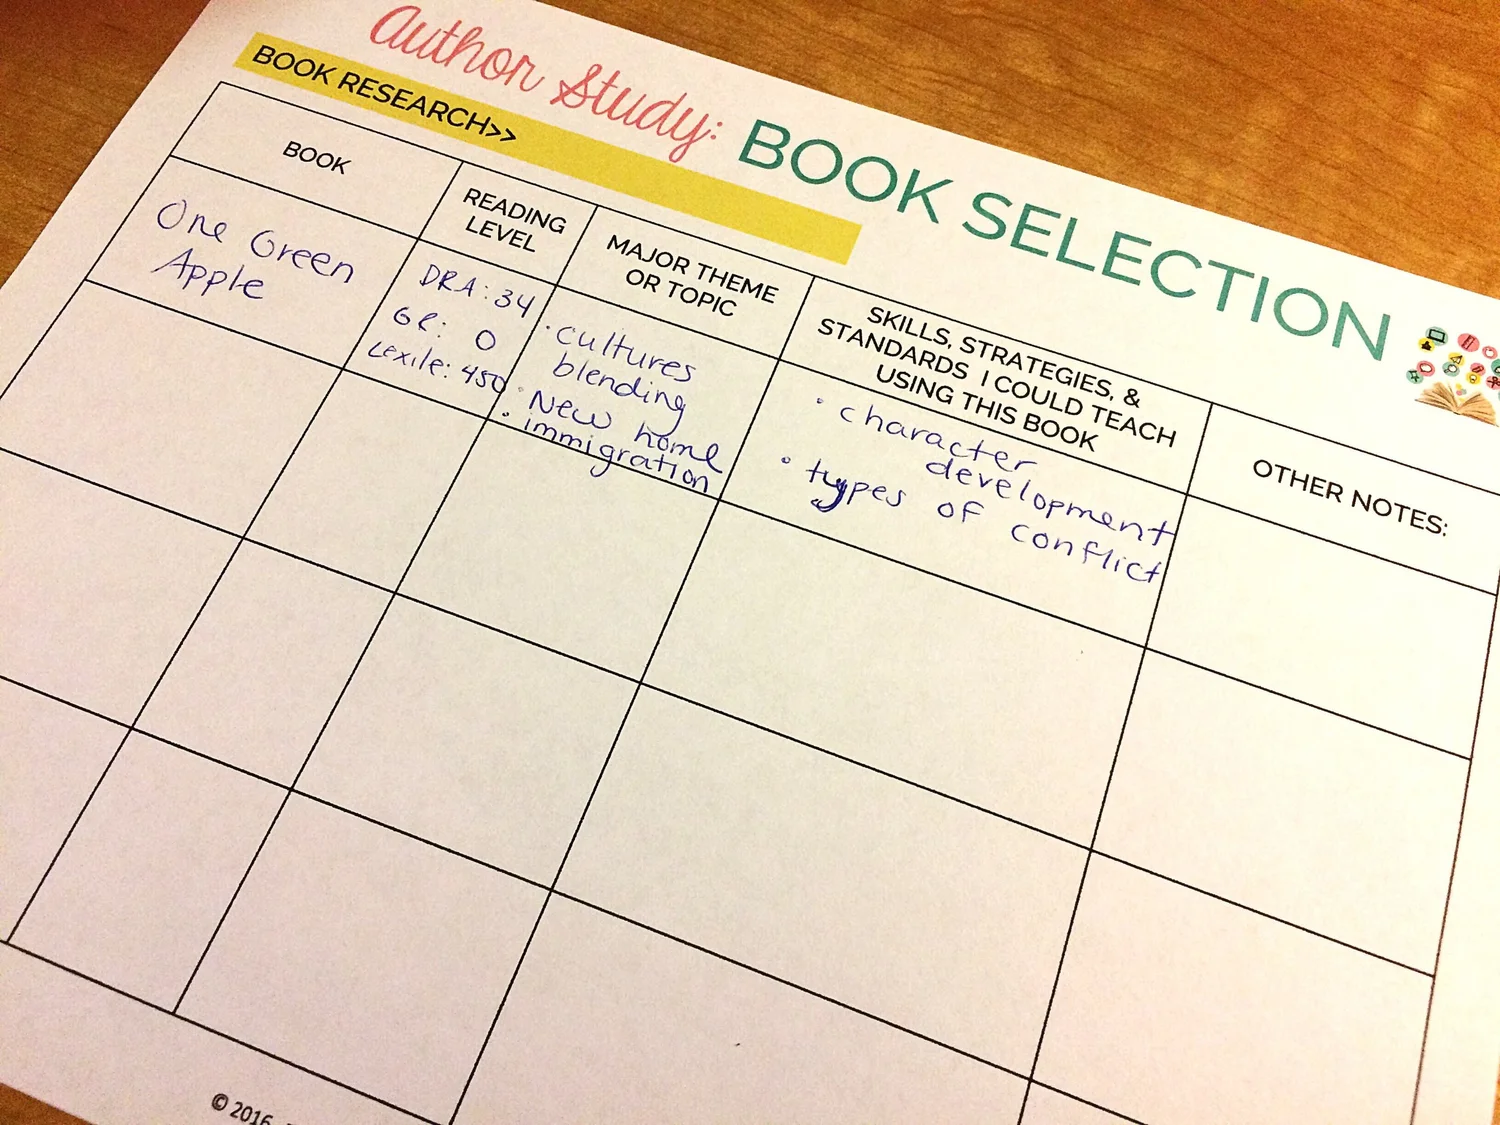 Author Study: BOOK SELECTION
BOOK RESEARCH>>
BOOK
READING
LEVEL
MAJOR THEME
OR TOPIC
SKILLS, STRATEGIES, &
STANDARDS I COULD TEACH
USING THIS BOOK
OTHER NOTES:
One Green
Apple
DRA: 34
GR: O
Lexile: 450
· cultures
blending
· New home
· immigration
· character
development
· types of
conflict
© 2016